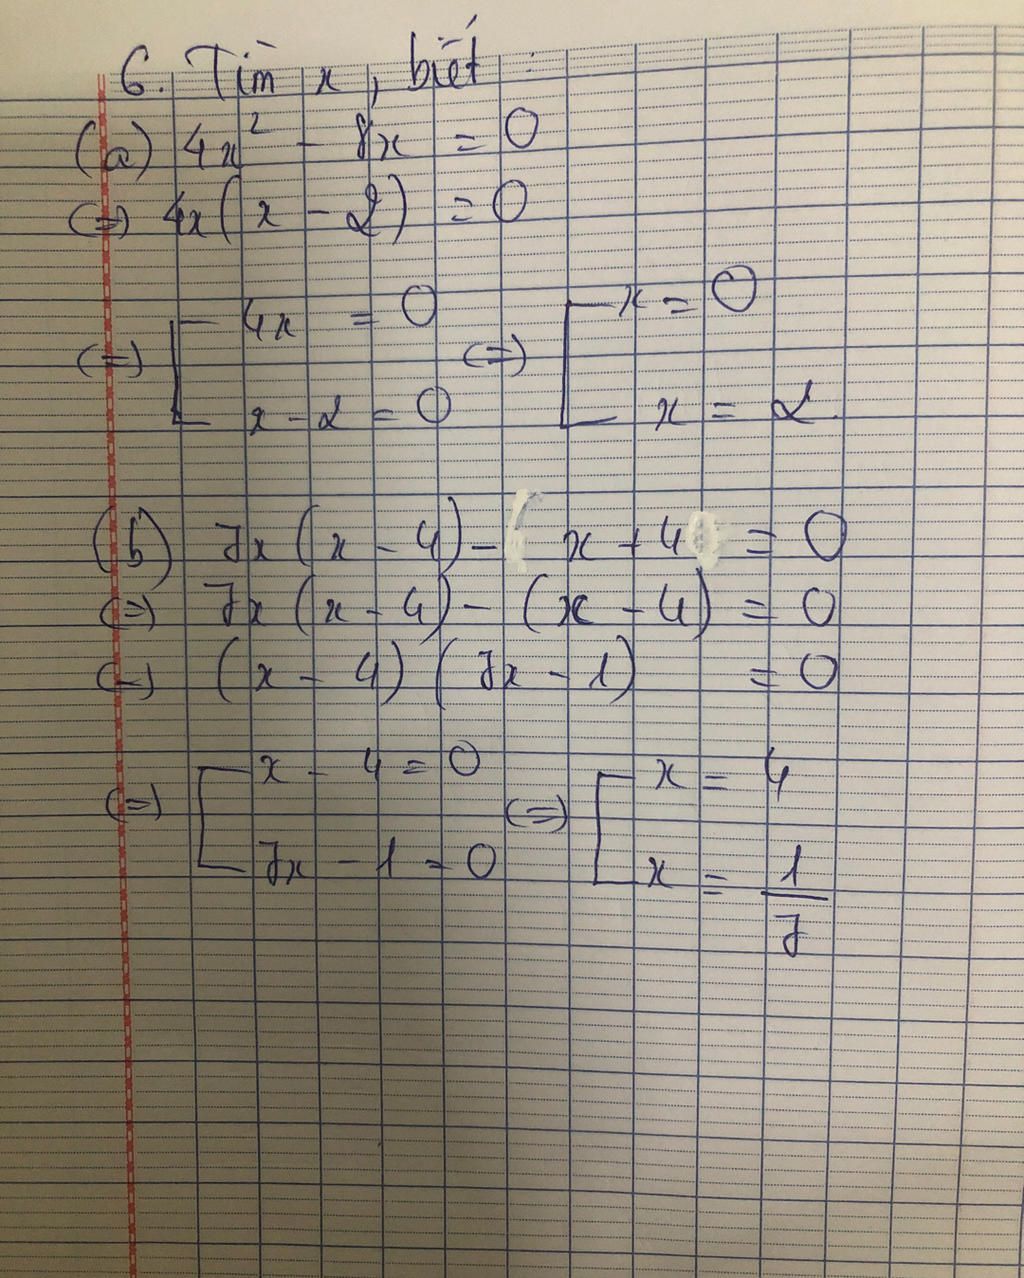 6. Tìm x, biết :
(a) 4x² - 8x = 0
(=) 4x(x - 2) = 0
(=) [ 4x = 0 (=) [ x = 0
x - 2 = 0 x = 2.
(b) 7x(x - 4) - x + 4 = 0
(=) 7x(x - 4) - (x - 4) = 0
(=) (x - 4)(7x - 1) = 0
(=) [ x - 4 = 0 (=) [ x = 4
7x - 1 = 0 x = 1/7